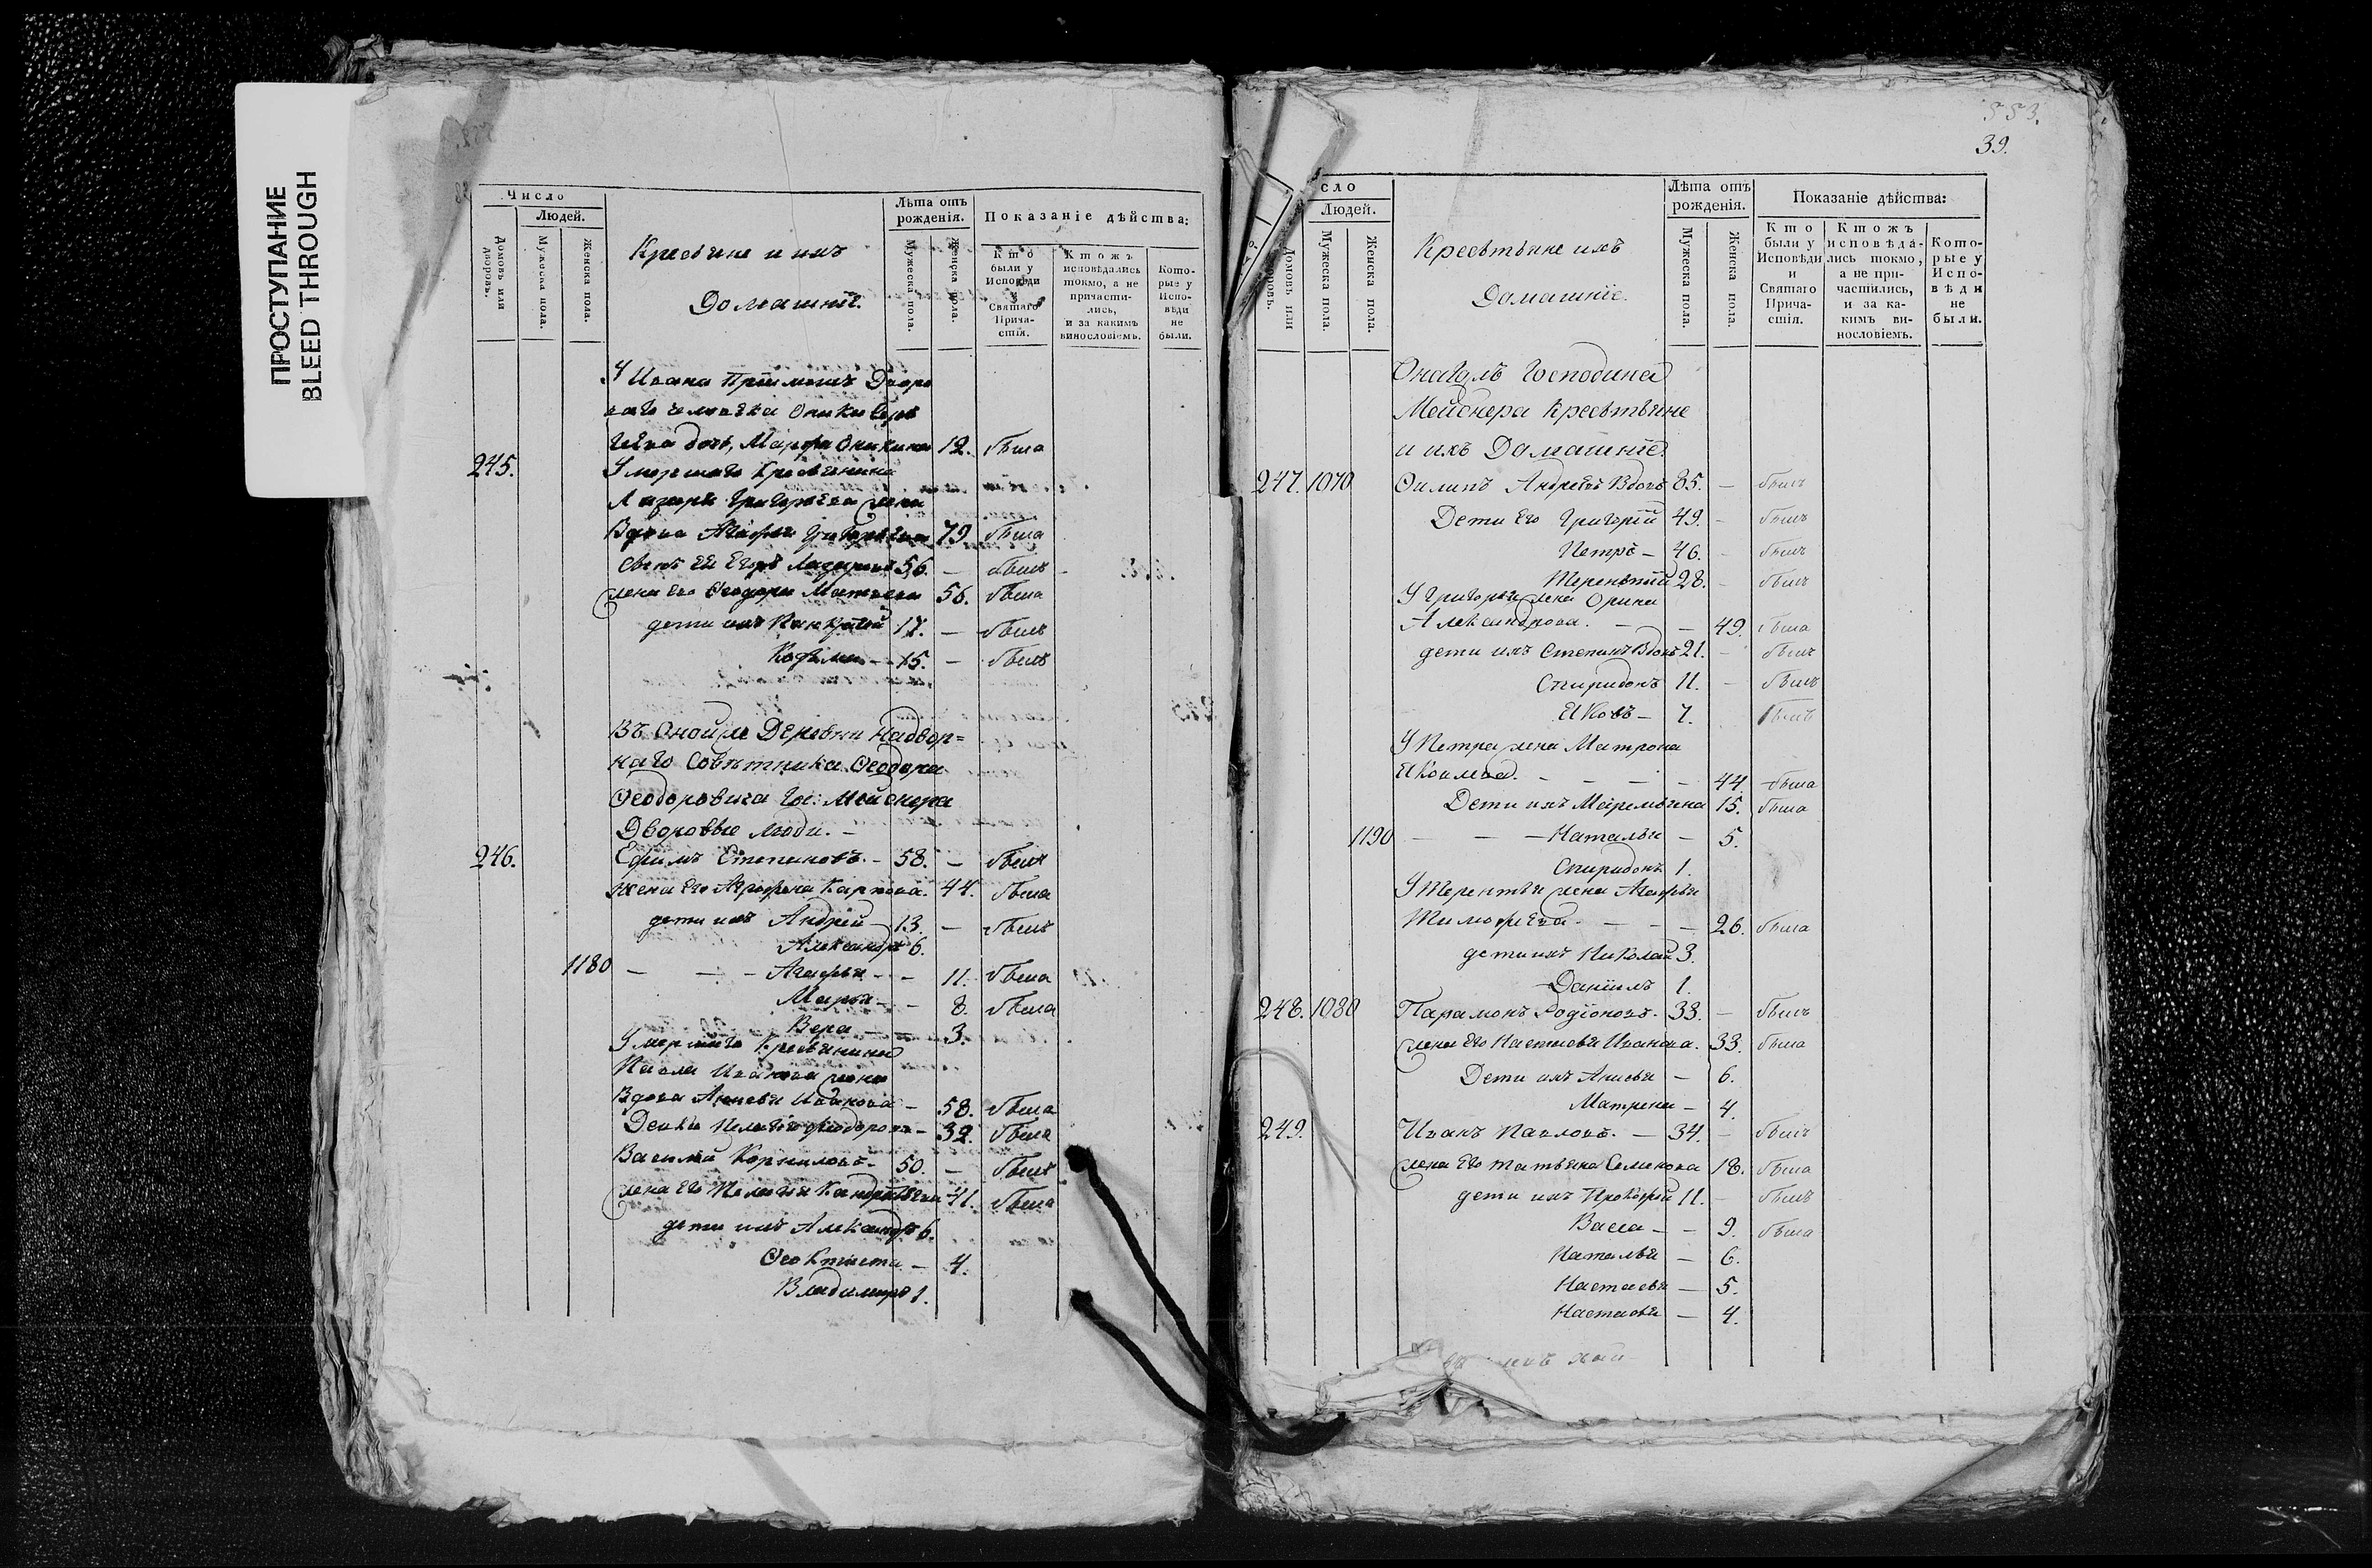 ПРОСТУПАНИЕ
BLEED THROUGH
Число
Людей.
Домовъ или дворовъ.
Мужеска пола.
Женска пола.
Кресьяне и ихъ
Домашнїе.
Лѣта отъ рожденія.
Мужеска пола.
Женска пола.
Показаніе дѣйства:
Кто были у Исповѣди и Святаго Причастія.
Ктожъ исповѣдались токмо, а не причастились, и за какимъ винословіемъ.
Которые у Исповѣди не были.
У Ивана Прїимышъ Дворо
ваго человѣка Оники
дочь, Марфа Оникина 12. была
245. Умершаго Кресьянина
Лазаря Григорьева жена
Вдова Агафья Григорьева 79. была
сынъ ея Егоръ Лазаревъ 56. — былъ
жена его Ѳеодора Матвеева 56. была
дети ихъ Панкратїй 17. — былъ
Козьма — 15. — былъ
Въ Оной же Деревни Надвор=
наго Совѣтника Ѳеодора
Ѳеодоровича Го: Мейснера
Дворовые люди. —
246. Ефимъ Степановъ. — 58. — былъ
жена Его Аграфена Карпова. 44. была
дети ихъ Андрей 13. — былъ
Александръ 6.
1180 — — — Агафья — — 11. была
Марья — — 8. была
Вера — — 3.
Умершаго Кресьянина
Павла Иванова жена
Вдова Анисья Иванова — 58. была
Девка Пелагея Ѳеодорова — 32. была
Василей Корниловъ. 50. — былъ
жена Его Пелагея Кандратьева 41. была
дети ихъ Александръ 6.
Ѳеоктиста — 4.
Владимиръ 1.
553.
39.
сло
Людей.
Домовъ или дворовъ.
Мужеска пола.
Женска пола.
Кресьтьяне ихъ
Домашнїе.
Лѣта отъ рожденія.
Мужеска пола.
Женска пола.
Показаніе дѣйства:
Кто были у Исповѣди и Святаго Причастія.
Ктожъ исповѣдались токмо, а не причастились, и за какимъ винословіемъ.
Которые у Исповѣди не были.
Онагожъ Господина
Мейснера Кресьтьяне
и ихъ Домашнїе
247. 1070 Филипъ Андреевъ Вдовъ 85. — былъ
Дети Его Григорїй 49. — былъ
Петръ — 46. — былъ
Терентїй 28. — былъ
У Григорья жена Орина
Александрова. — — 49. была
дети ихъ Степанъ Вдовъ 21. — былъ
Спиридонъ 11. — былъ
Яковъ — 7. былъ
У Петра жена Матрона
Якимова. — — — — 44. была
Дети ихъ Маремьяна 15. была
1190 — — — Наталья — 5.
Спиридонъ 1.
У Терентья жена Агафья
Тимофеева. — — — 26. была
дети ихъ Николай 3.
Данїилъ 1.
248. 1080 Парамонъ Родїоновъ. 33. — былъ
жена Его Настасья Иванова. 33. была
Дети ихъ Анисья — 6.
Матрена — 4.
249. Иванъ Павловъ. — 34. — былъ
жена Его Татьяна Семенова 18. была
дети ихъ Прокофїй 11. — былъ
Васса — — 9. была
Наталья — 6.
Настасья — 5.
Настасья — 4.